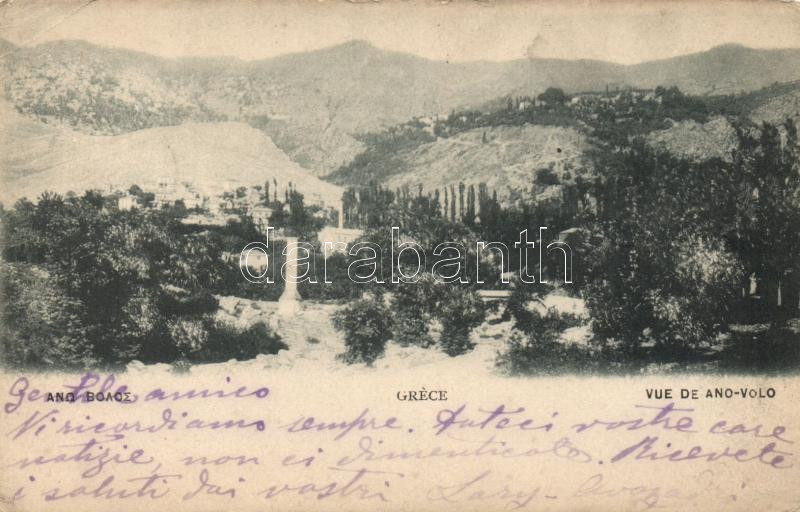 darabanth
ΑΝΩ ΒΟΛΟΣ GRÈCE VUE DE ANO-VOLO
Gentile amico
Vi ricordiamo sempre. Dateci vostre care
notizie, non ci dimenticate. Ricevete
i saluti dai vostri